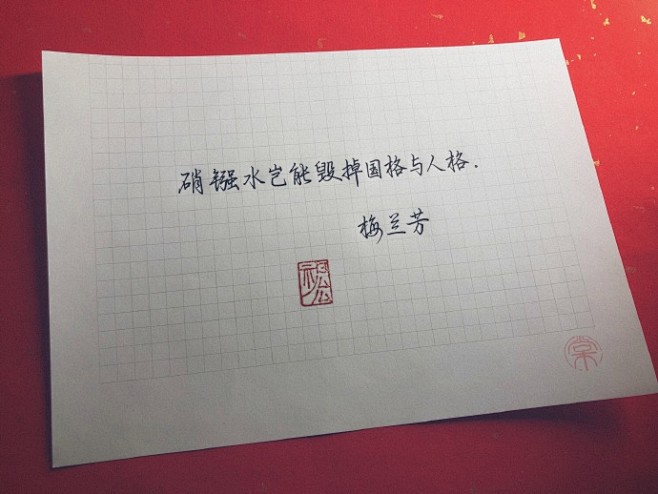 硝镪水岂能毁掉国格与人格.
梅兰芳